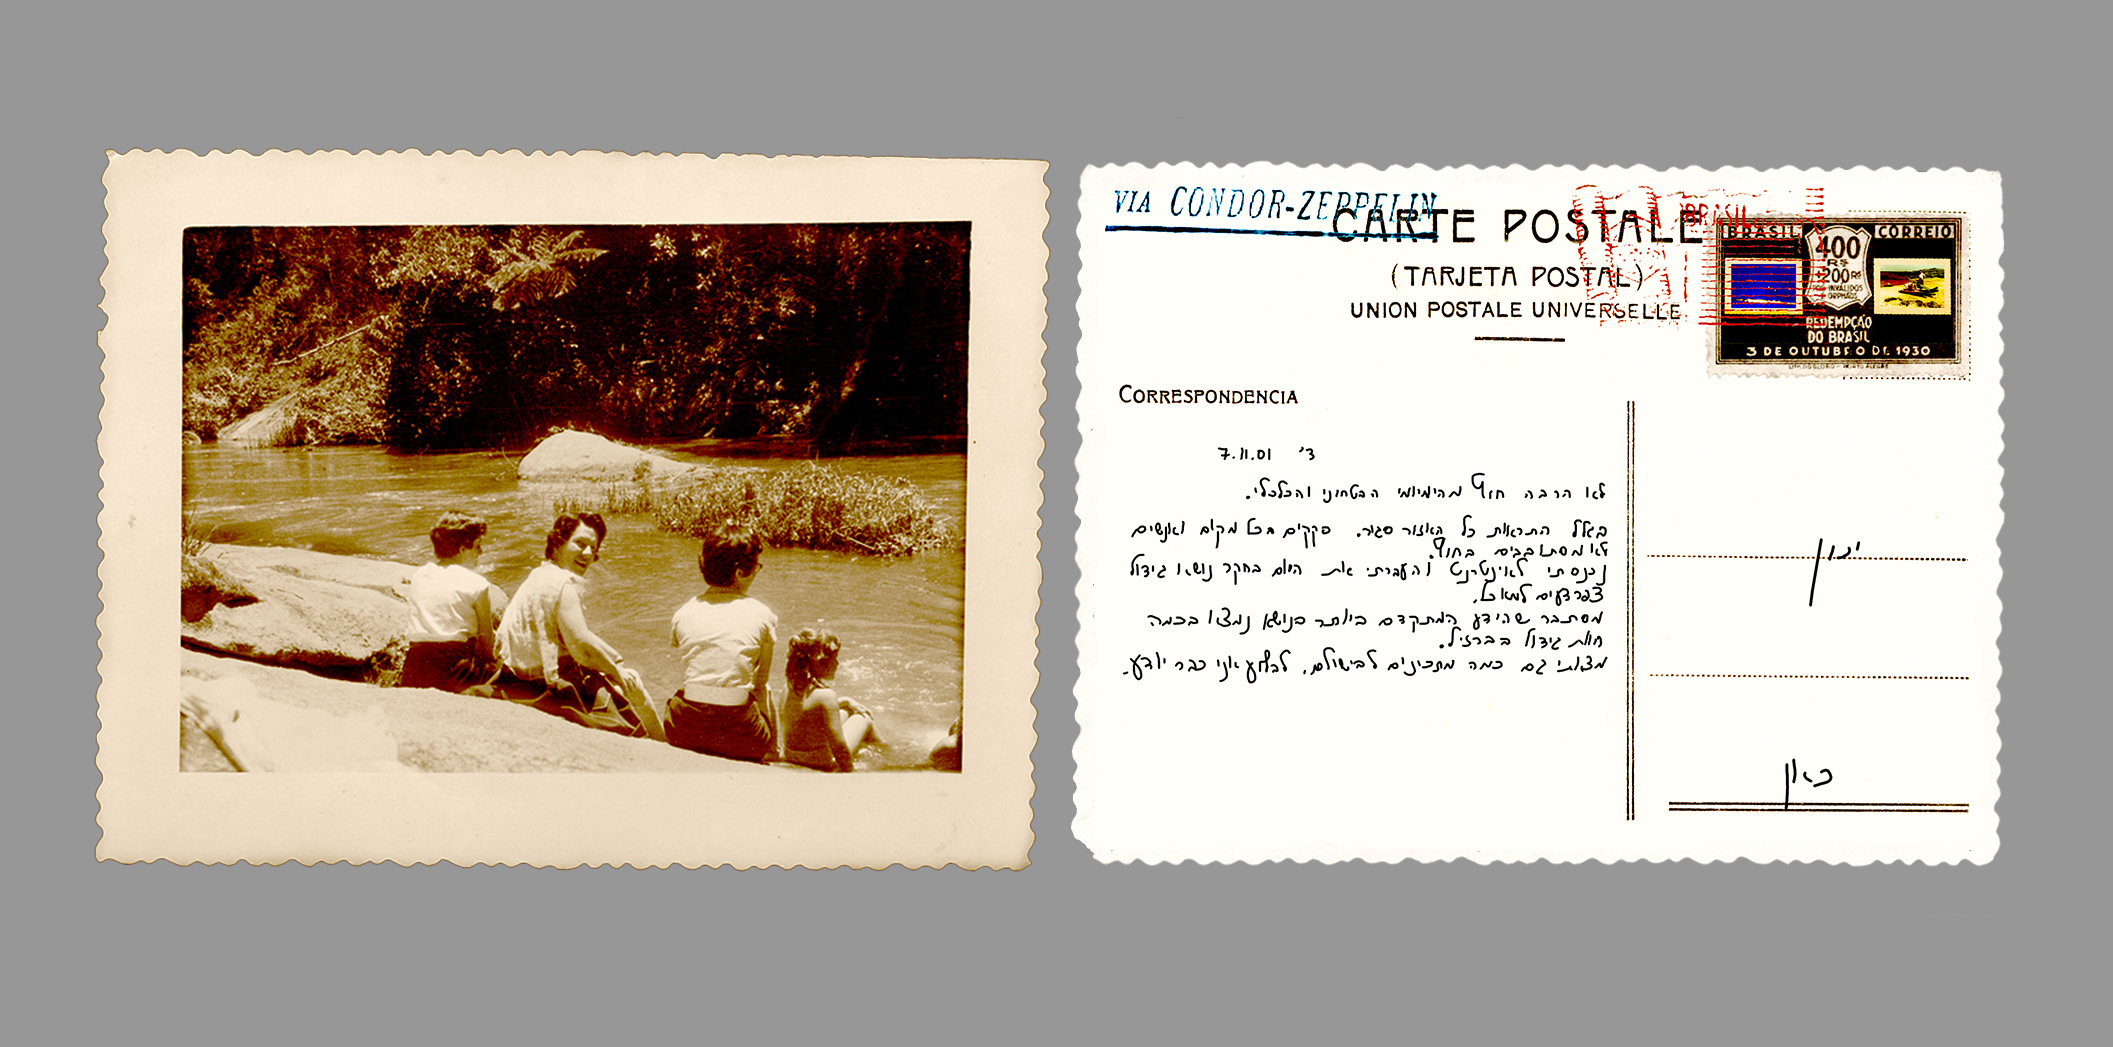 VIA CONDOR-ZEPPELIN
CARTE POSTALE
(TARJETA POSTAL)
UNION POSTALE UNIVERSELLE
BRASIL
BRASIL CORREIO
400
R$
+200 Rs
INVALIDOS
ORPHÃOS
REDEMPÇÃO
DO BRASIL
3 DE OUTUBRO DE 1930
CORRESPONDENCIA
ד' 7.11.01
לא הרבה חוץ מהיומיומי הבטחוני והכלכלי.
בגלל התראות כל האזור סגור. פקקים בכל מקום ואנשים
לא מסתובבים בחוץ.
נכנסתי לאינטרנט והעברתי את היום בחקר נושא גידול
צפרדעים למאכל.
מסתבר שהידע המתקדם ביותר בנושא נמצא בכמה
חוות גידול בברזיל.
מצאתי גם כמה מתכונים לבישולם. אני כבר יודע.
ינון
כאן